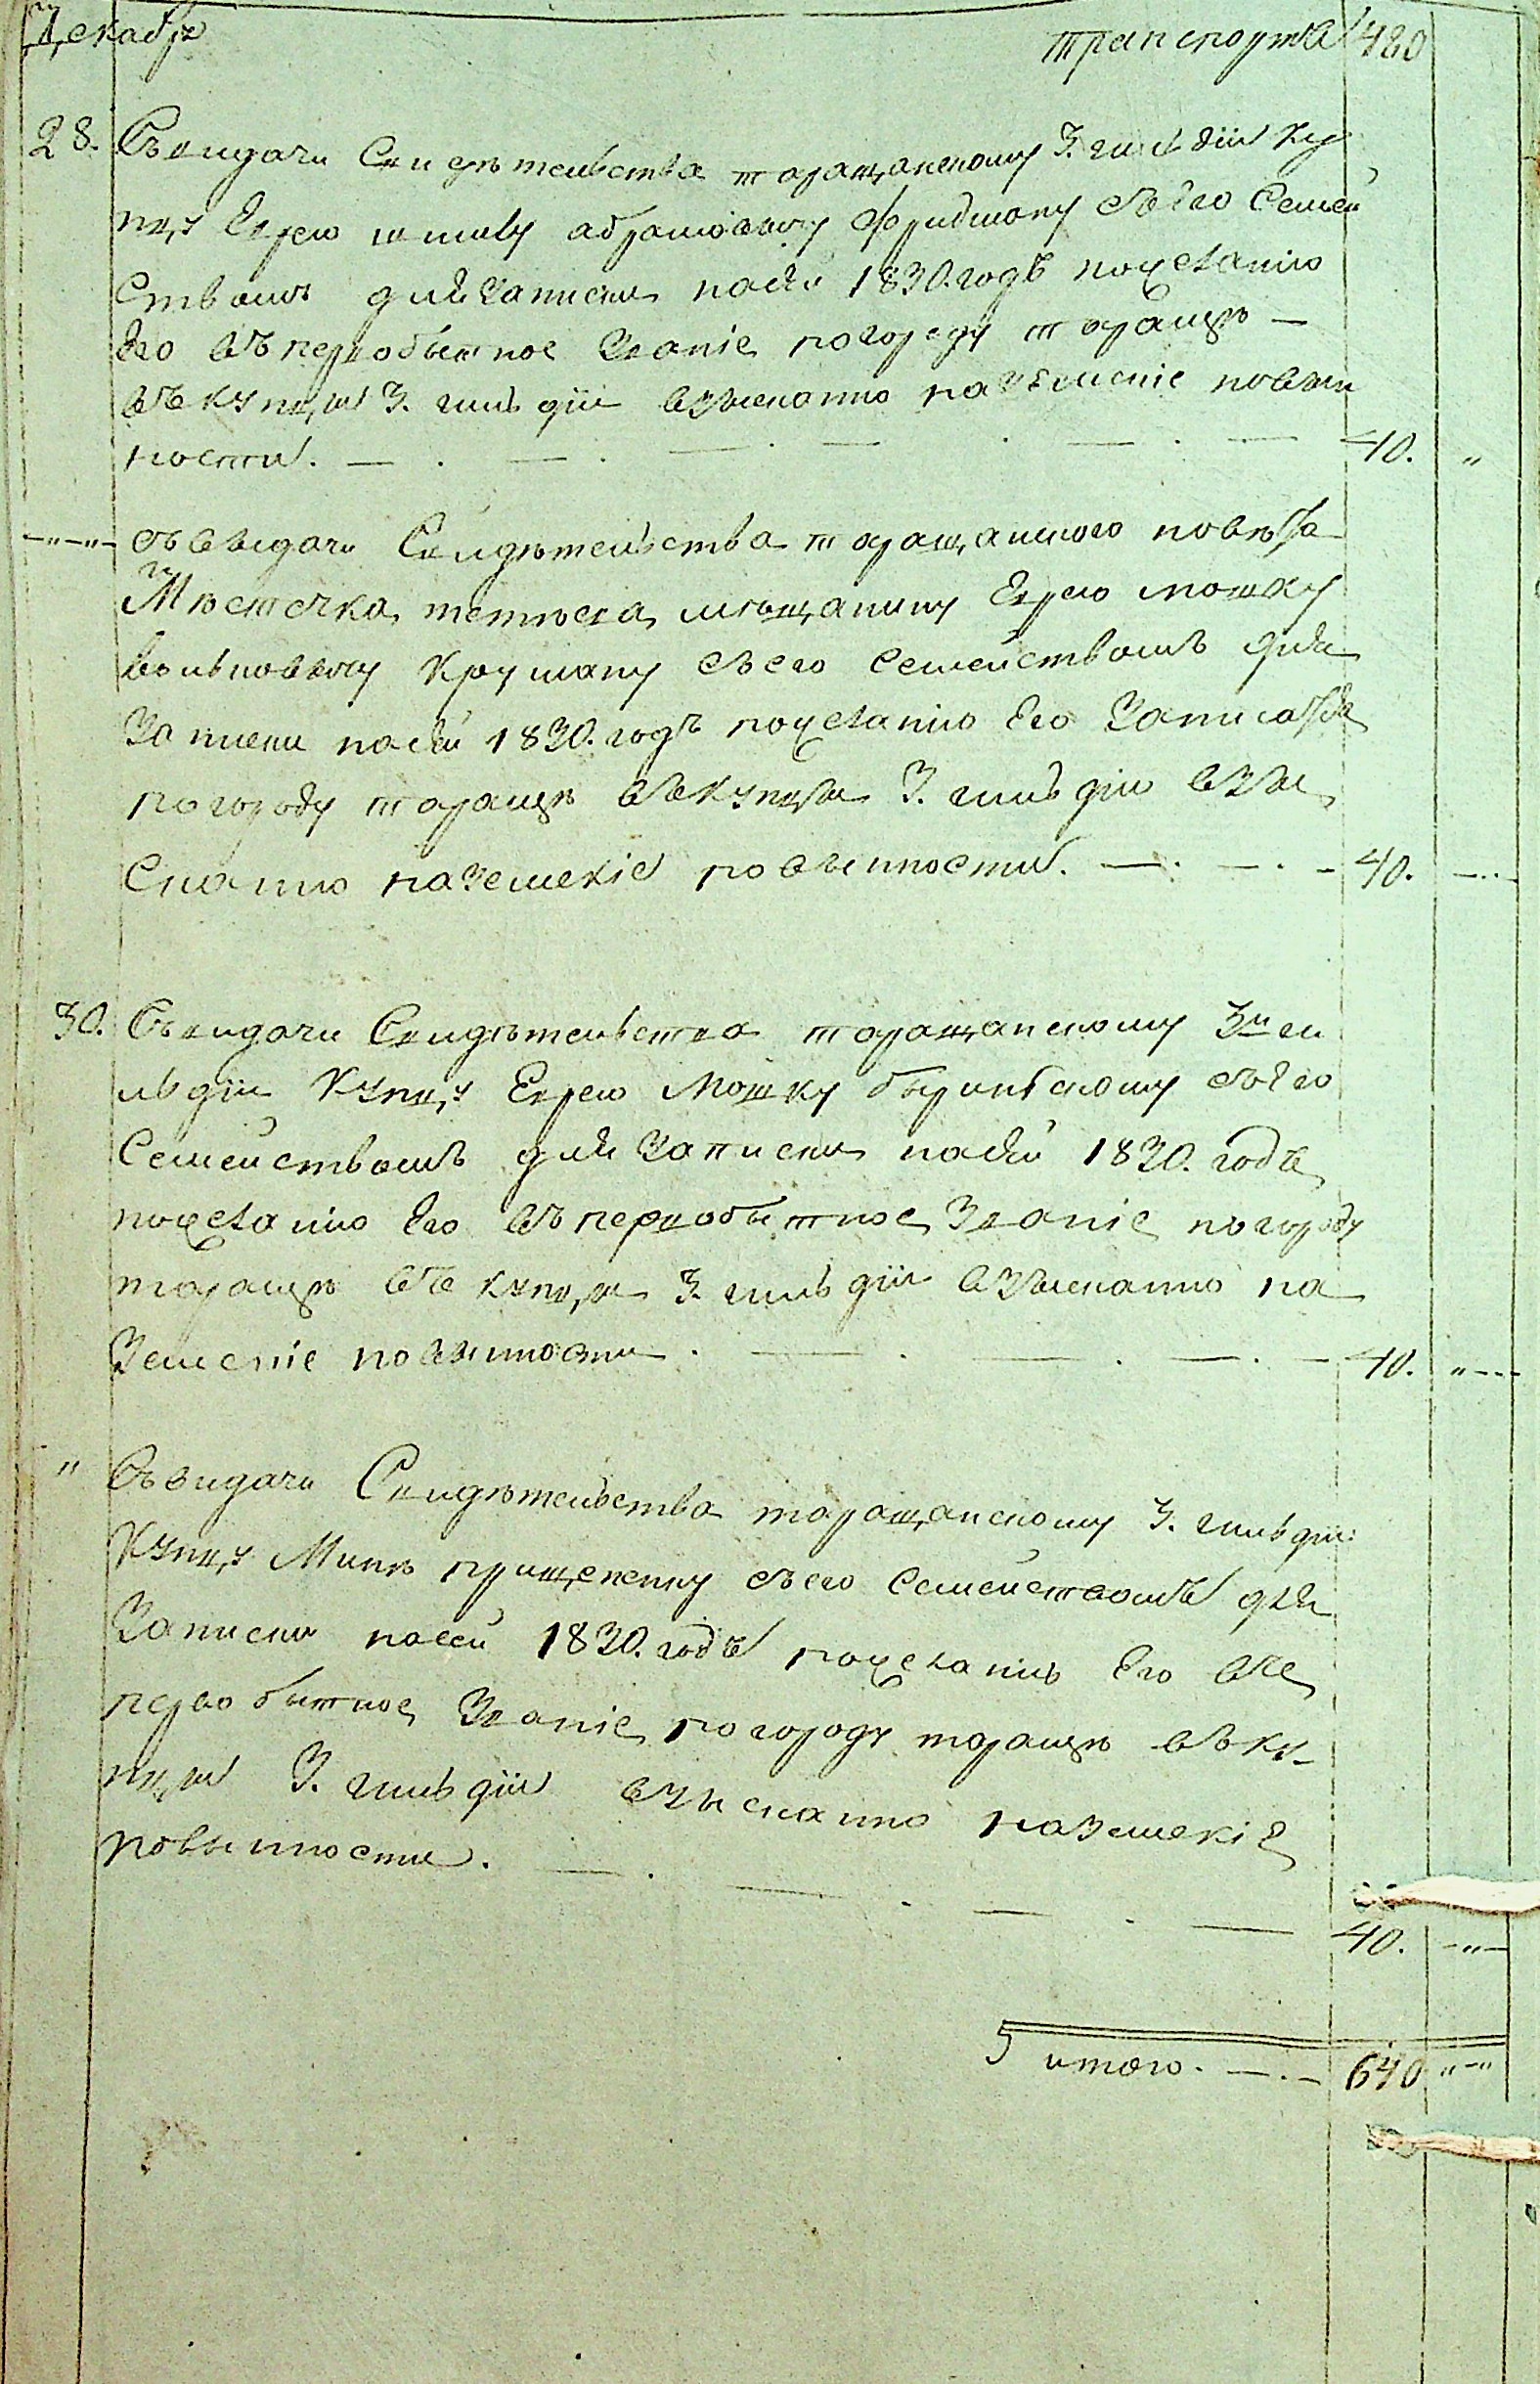 Декабрь транспортъ 480
28. Съвидачи Свидѣтельства таращанскому 3. гилдіи ку
пцу Еврею абрамовичу фридману съ Его Семей
ствомъ для Записки насей 1830. годъ
Его въ первобытное Званіе погороду таращѣ —
въ купцы 3. гильдіи взысканно на земскіе повын
ности. — . — . — . — . — . — 40. „
—„—„— съ выдачи Свидѣтельства таращанского повѣта
Мѣстечка тетіева мѣщанину Еврею мошку
вольковычу съ его Семействомъ для
Записки насей 1830. годъ Его Записатся
погороду таращѣ въ купцы 3. гильдію взы
сканно на земскіе повынности. — . — . — 40. —...
30. Съвидачи Свидѣтельства таращанскому 3й ги
льдіи Купцу Еврею Мошку съ Его
Семействомъ для Записки насей 1830. годъ
Его въ первобытное Званіе по городу
таращѣ въ купцы 3. гильдіи взысканно на
Земскіе повынности . — . — . — . — 40. „---
„ Съвидачи Свидѣтельства таращанскому 3. гильдіи
Купцу съ его Семействомъ для
Записки насей 1830. годъ Его въ
первобытное Званіе по городу таращѣ въ ку-
пцы 3. гильдіи взысканно на земскіе
повынности. — . — . — . — 40. —„—
итого. — . — 640 „—„